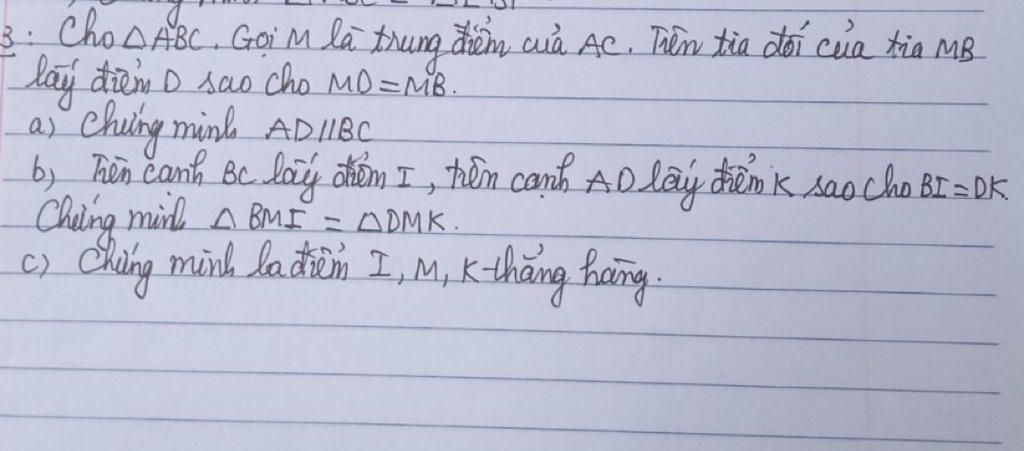 3: Cho △ABC. Gọi M là trung điểm của AC. Trên tia đối của tia MB
lấy điểm D sao cho MD=MB.
a) Chứng minh AD//BC
b) Trên cạnh BC lấy điểm I, trên cạnh AD lấy điểm K sao cho BI=DK.
Chứng minh △BMI = △DMK.
c) Chứng minh ba điểm I, M, K thẳng hàng.